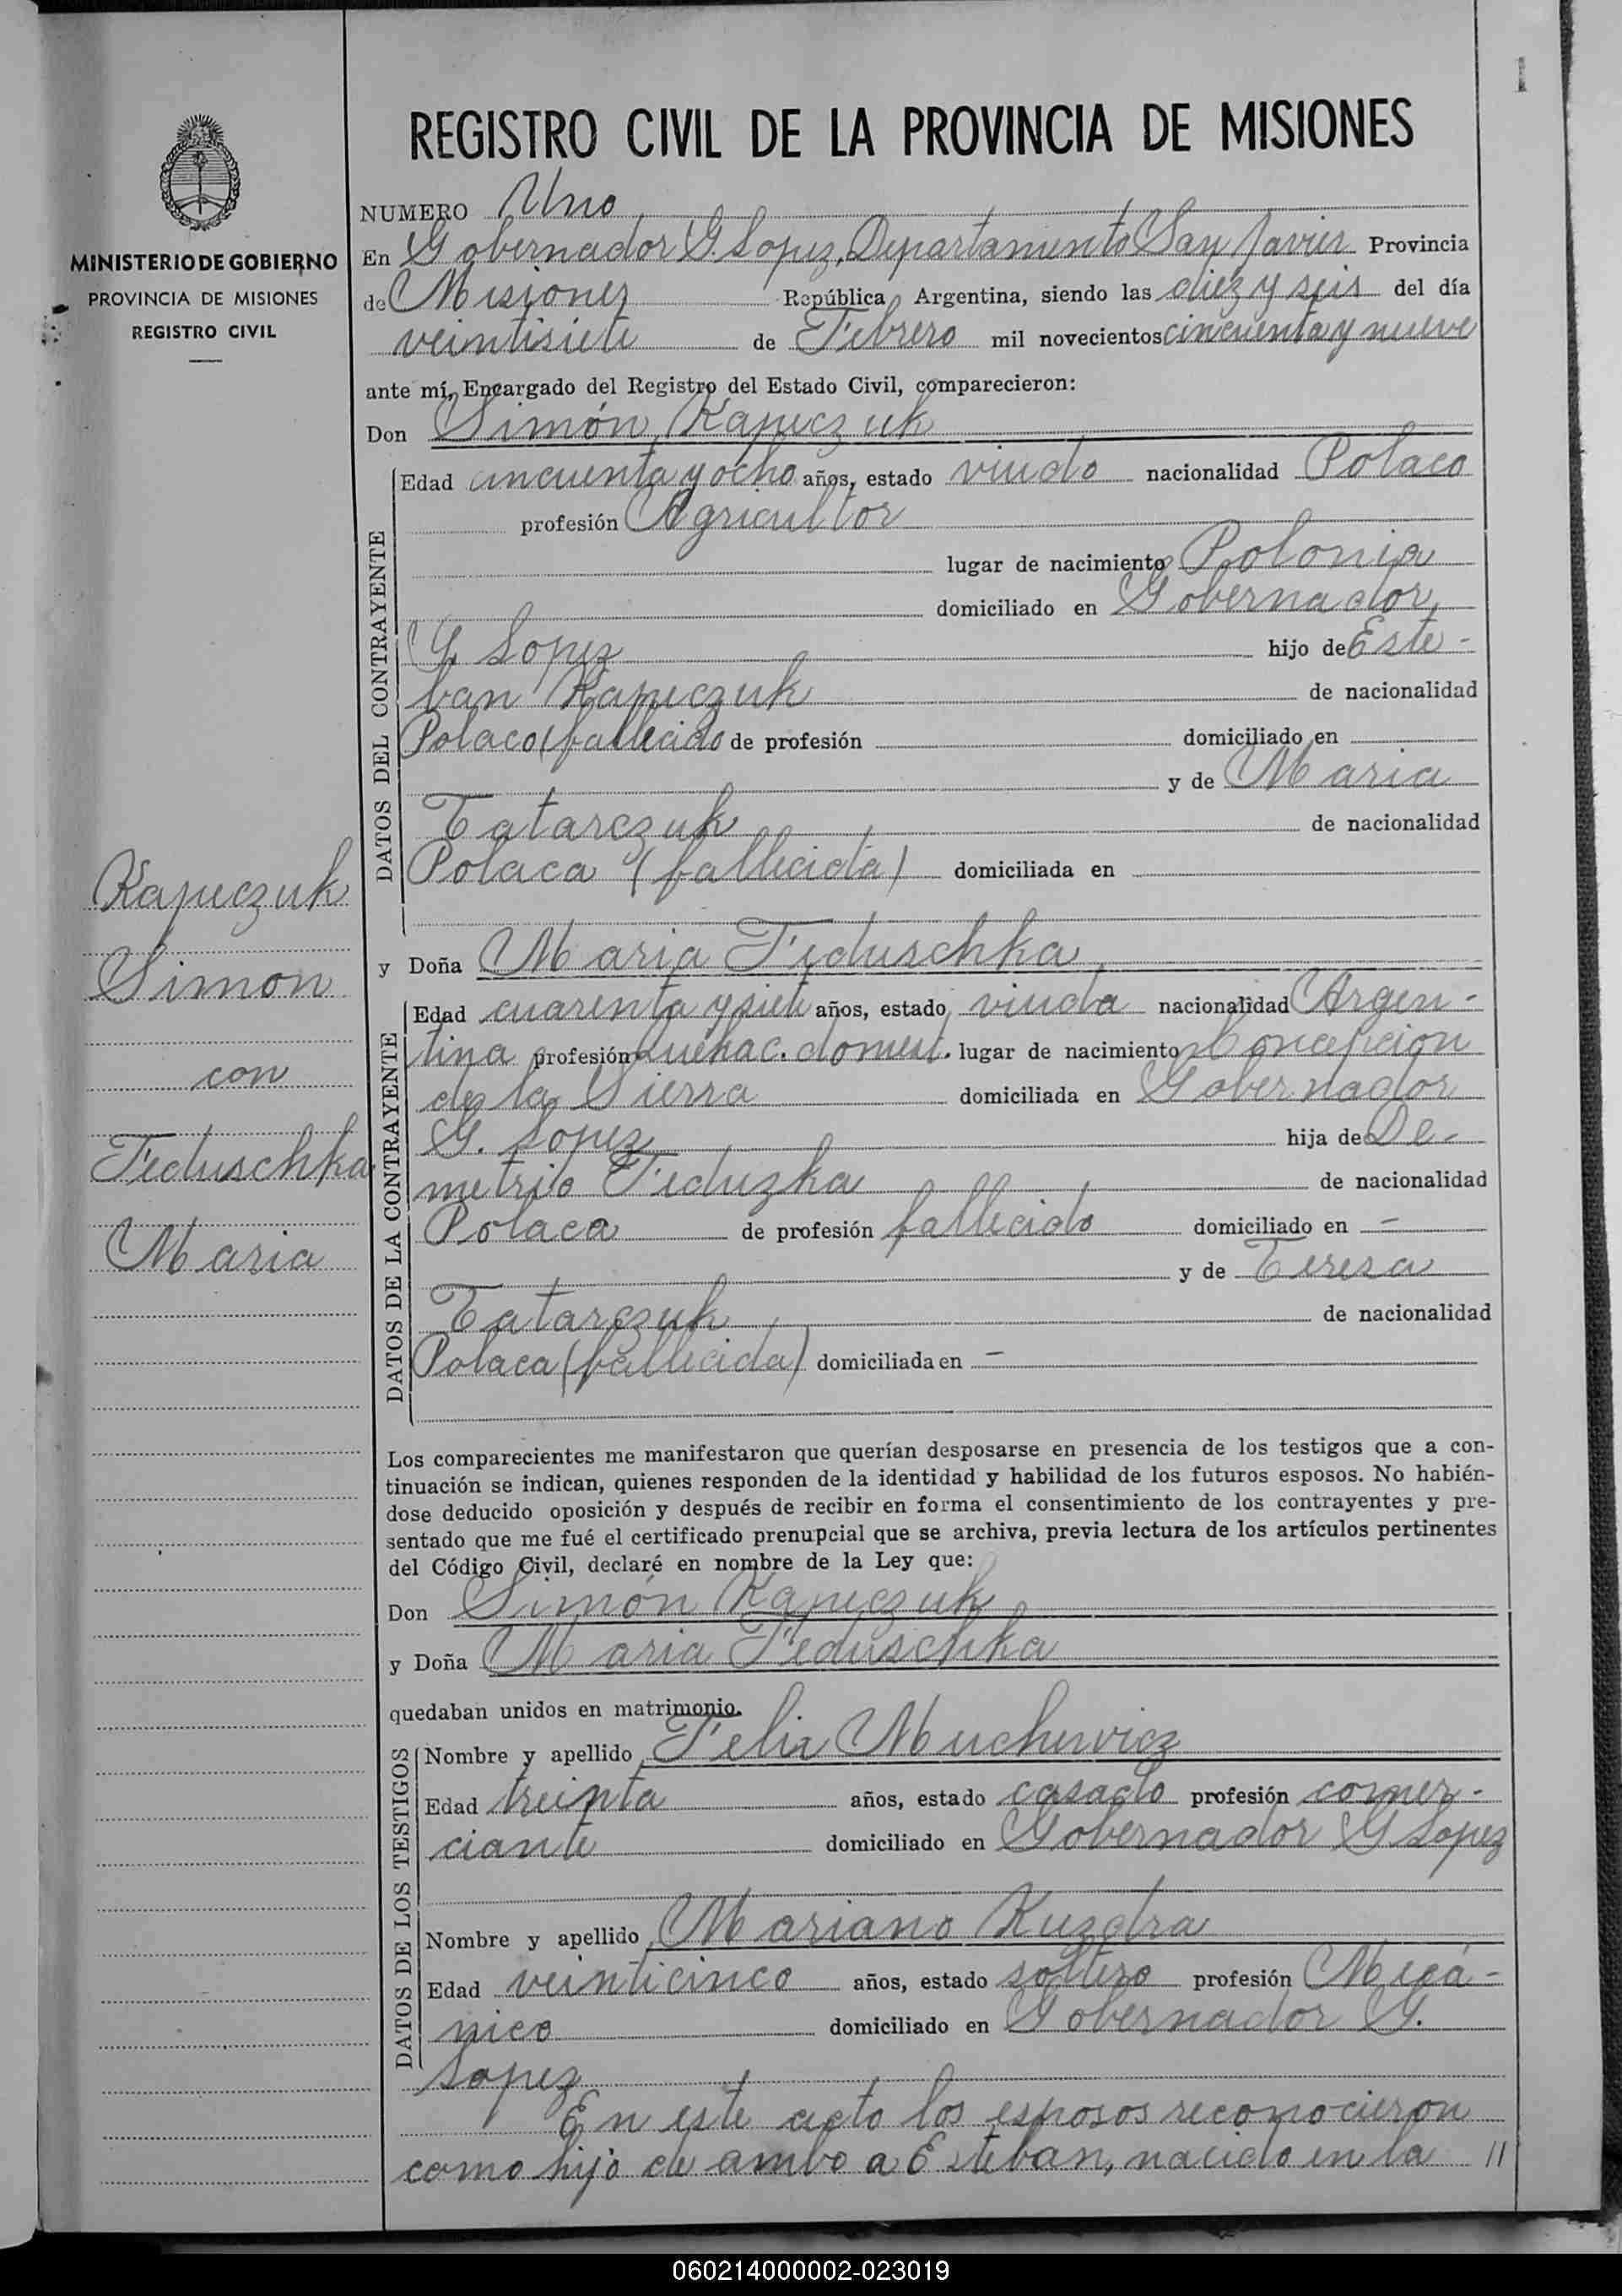 1
REGISTRO CIVIL DE LA PROVINCIA DE MISIONES
MINISTERIO DE GOBIERNO
PROVINCIA DE MISIONES
REGISTRO CIVIL
NUMERO Uno
En Gobernador G. Lopez, Departamento San Javier Provincia
de Misiones República Argentina, siendo las diez y seis del día
veintisiete de Febrero mil novecientos cincuenta y nueve
ante mí, Encargado del Registro del Estado Civil, comparecieron:
Don Simón Kapeczuk
DATOS DEL CONTRAYENTE
Edad cincuenta y ocho años, estado viudo nacionalidad Polaco
profesión Agricultor
lugar de nacimiento Polonia
domiciliado en Gobernador
G. Lopez hijo de Este-
ban Kapeczuk de nacionalidad
Polaco (fallecido de profesión domiciliado en
y de Maria
Tatarczuk de nacionalidad
Polaca (fallecida) domiciliada en
Kapeczuk
Simon
con
Feduschka
Maria
y Doña Maria Feduschka
DATOS DE LA CONTRAYENTE
Edad cuarenta y siete años, estado viuda nacionalidad Argen-
tina profesión quehac. domest. lugar de nacimiento Concepcion
de la Sierra domiciliada en Gobernador
G. Lopez hija de De-
metrio Feduzka de nacionalidad
Polaca de profesión fallecido domiciliado en -
y de Teresa
Tatarczuk de nacionalidad
Polaca (fallecida) domiciliada en -
Los comparecientes me manifestaron que querían desposarse en presencia de los testigos que a con-
tinuación se indican, quienes responden de la identidad y habilidad de los futuros esposos. No habién-
dose deducido oposición y después de recibir en forma el consentimiento de los contrayentes y pre-
sentado que me fué el certificado prenupcial que se archiva, previa lectura de los artículos pertinentes
del Código Civil, declaré en nombre de la Ley que:
Don Simón Kapeczuk
y Doña Maria Feduschka
quedaban unidos en matrimonio.
DATOS DE LOS TESTIGOS
Nombre y apellido Felix Muchewicz
Edad treinta años, estado casado profesión comer-
ciante domiciliado en Gobernador G Lopez
Nombre y apellido Mariano Kuzdra
Edad veinticinco años, estado soltero profesión Mecá-
nico domiciliado en Gobernador G.
Lopez
En este acto los esposos reconocieron
como hijo de ambo a Esteban, nacido en la //
060214000002-023019